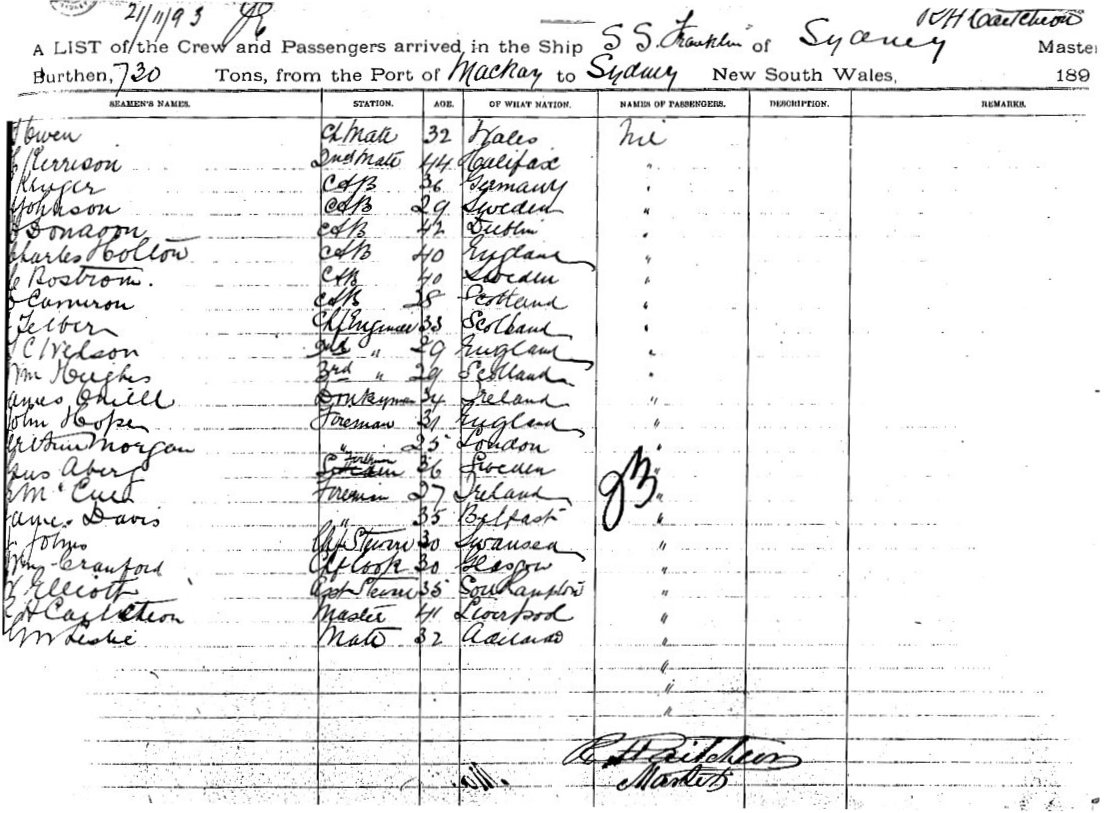 21/11/93
A LIST of the Crew and Passengers arrived in the Ship S S. Franklin of Sydney Master
Burthen, 730 Tons, from the Port of Mackay to Sydney New South Wales, 189
SEAMEN'S NAMES. STATION. AGE. OF WHAT NATION. NAMES OF PASSENGERS. DESCRIPTION. REMARKS.
Owen Ch Mate 32 Wales Nil
Kerrison 2nd Mate 44 Halifax "
Kruger AB 36 Germany "
Johnson AB 29 Sweden "
Donagon AB 42 Dublin "
Charles Holton AB 40 England "
Bostrom. AB 40 Sweden "
Cameron AB 28 Scotland "
Telber 33 Scotland "
C Nelson 2nd " 29 England "
Wm Hughes 3rd " 29 Scotland "
James Oneill Donkyman 34 Ireland "
John Hope Foreman 31 England "
Arthur Morgan " 25 London "
Aberg 36 Sweden "
McCue Foreman 27 Ireland "
James Davis " 35 Belfast "
Johns 30 Swansea "
Crawford Cook 30 Glasgow "
Elliott 35 Southampton "
Master 41 Liverpool "
Leslie Mate 32 Adelaide "
"
"
"
Master